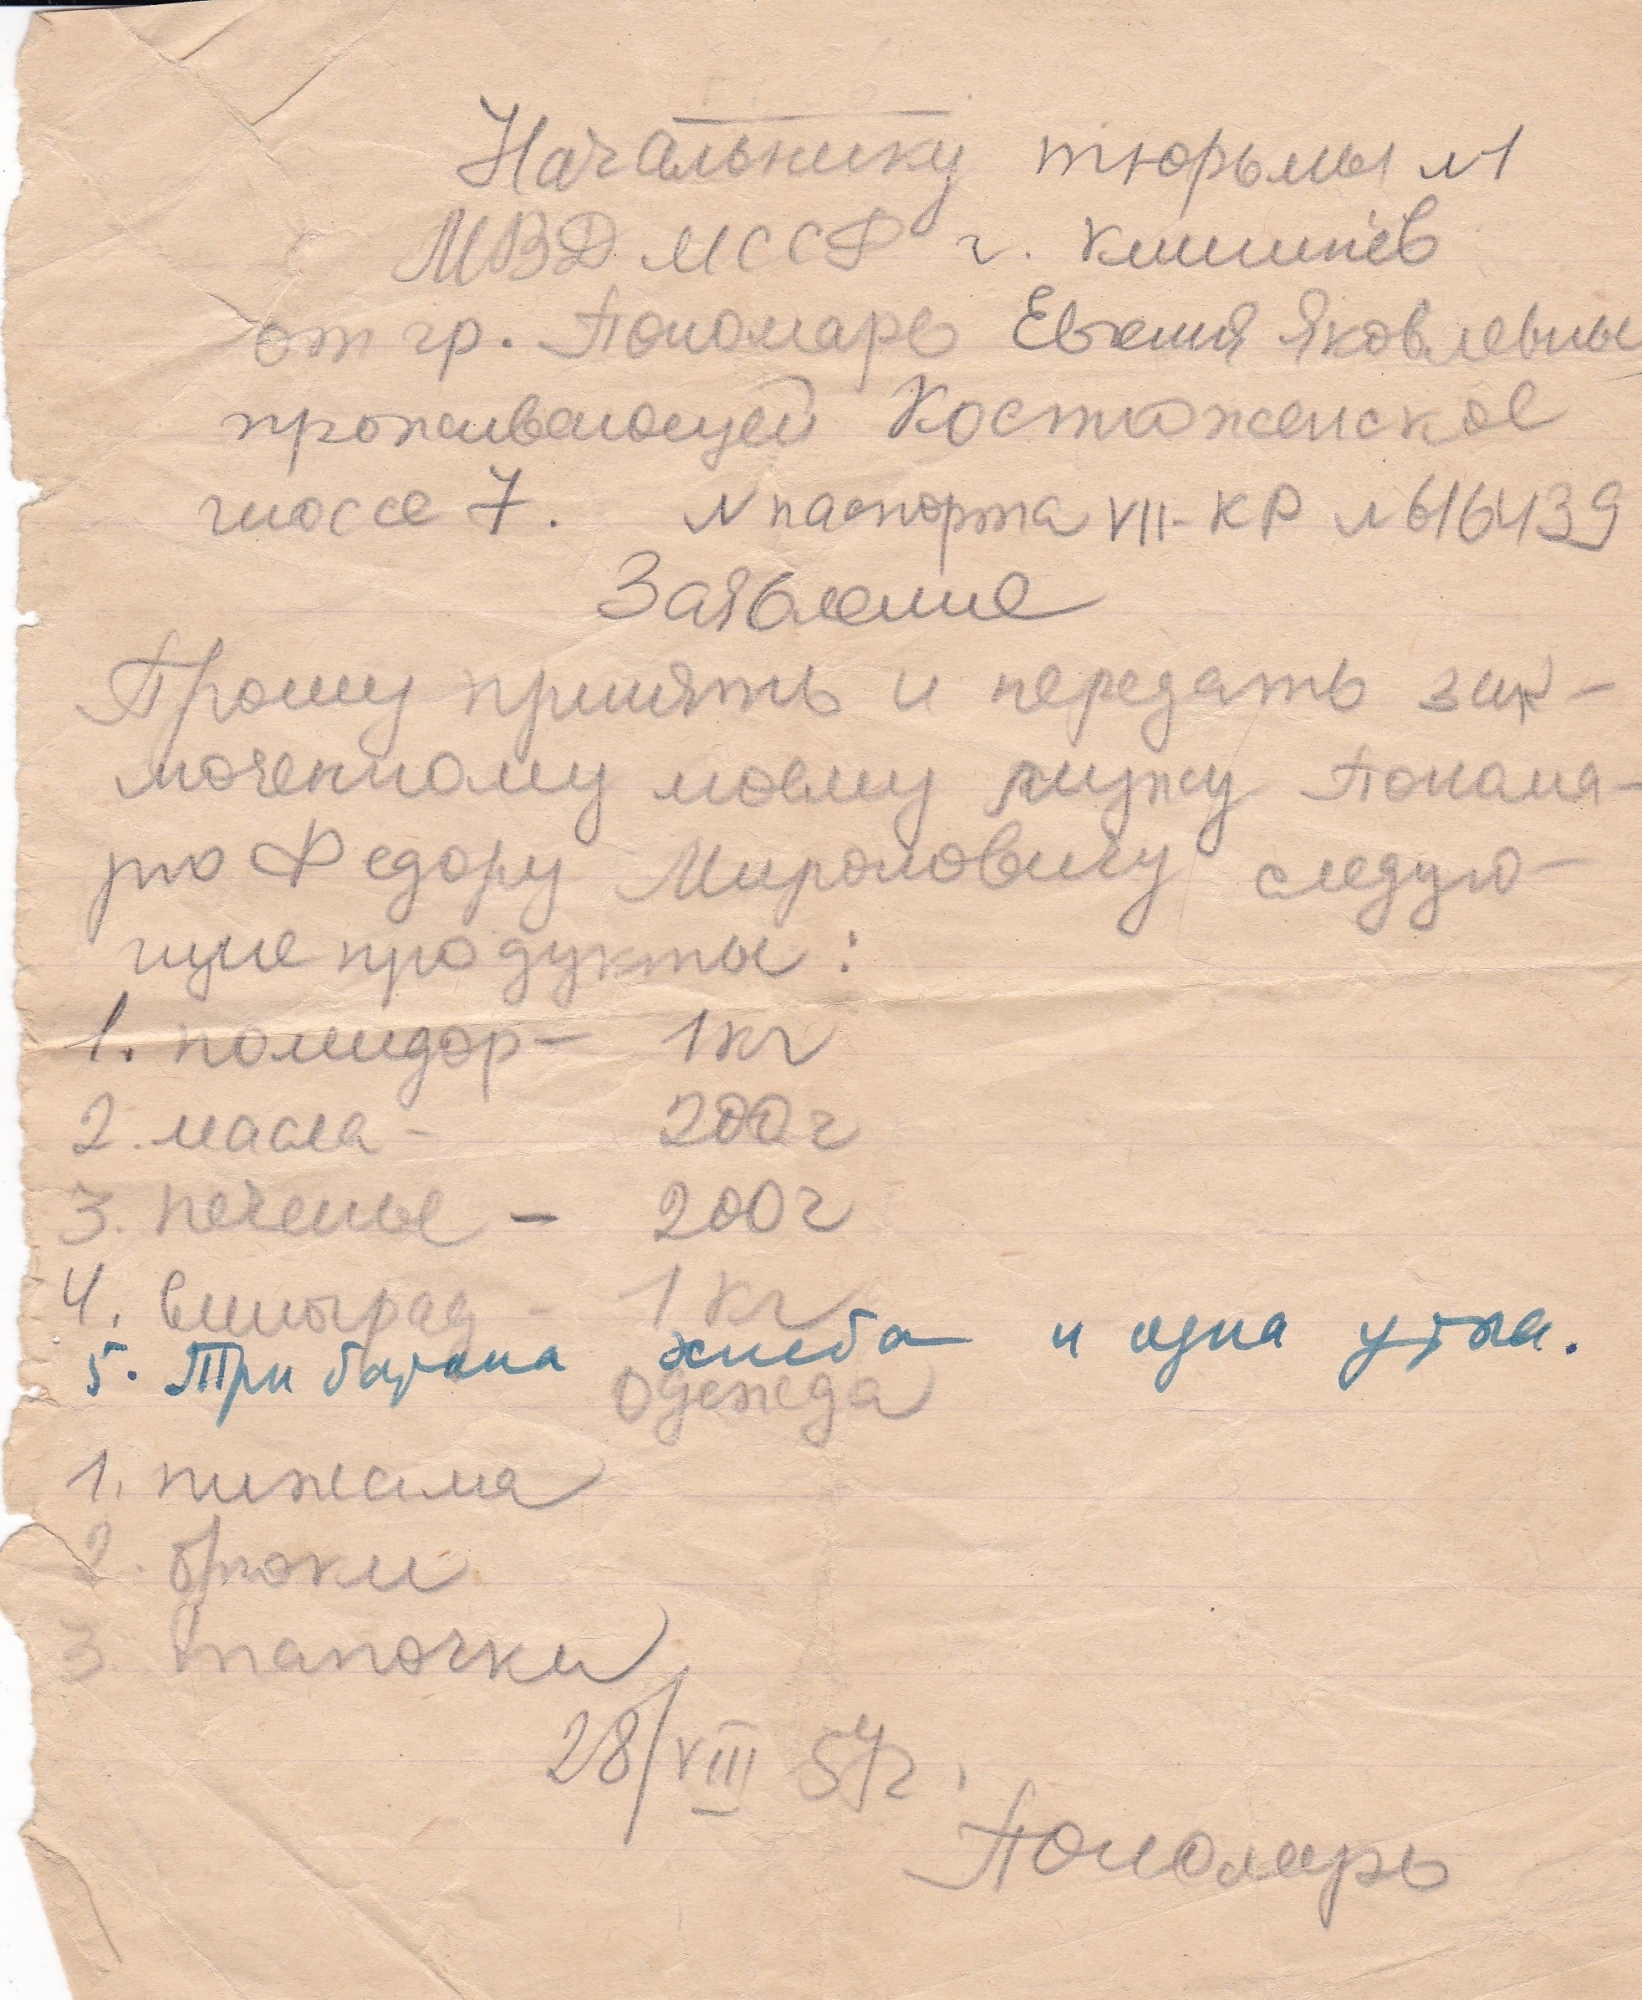 Начальнику тюрьмы №1
МВД МССР г. Кишинёв
от гр. Пономарь Евгения Яковлевны
проживающей Костюженское
шоссе 7. № паспорта VII-КР №616439
Заявление
Прошу принять и передать зак-
люченному моему мужу Понома-
рю Федору Мироновичу следую-
щие продукты:
1. помидор - 1кг
2. масла - 200г
3. печенье - 200г
4. виноград - 1кг
5. Три батона хлеба и одна утка.
Одежда
1. пижама
2. брюки
3. тапочки
28/VIII 54г.
Пономарь